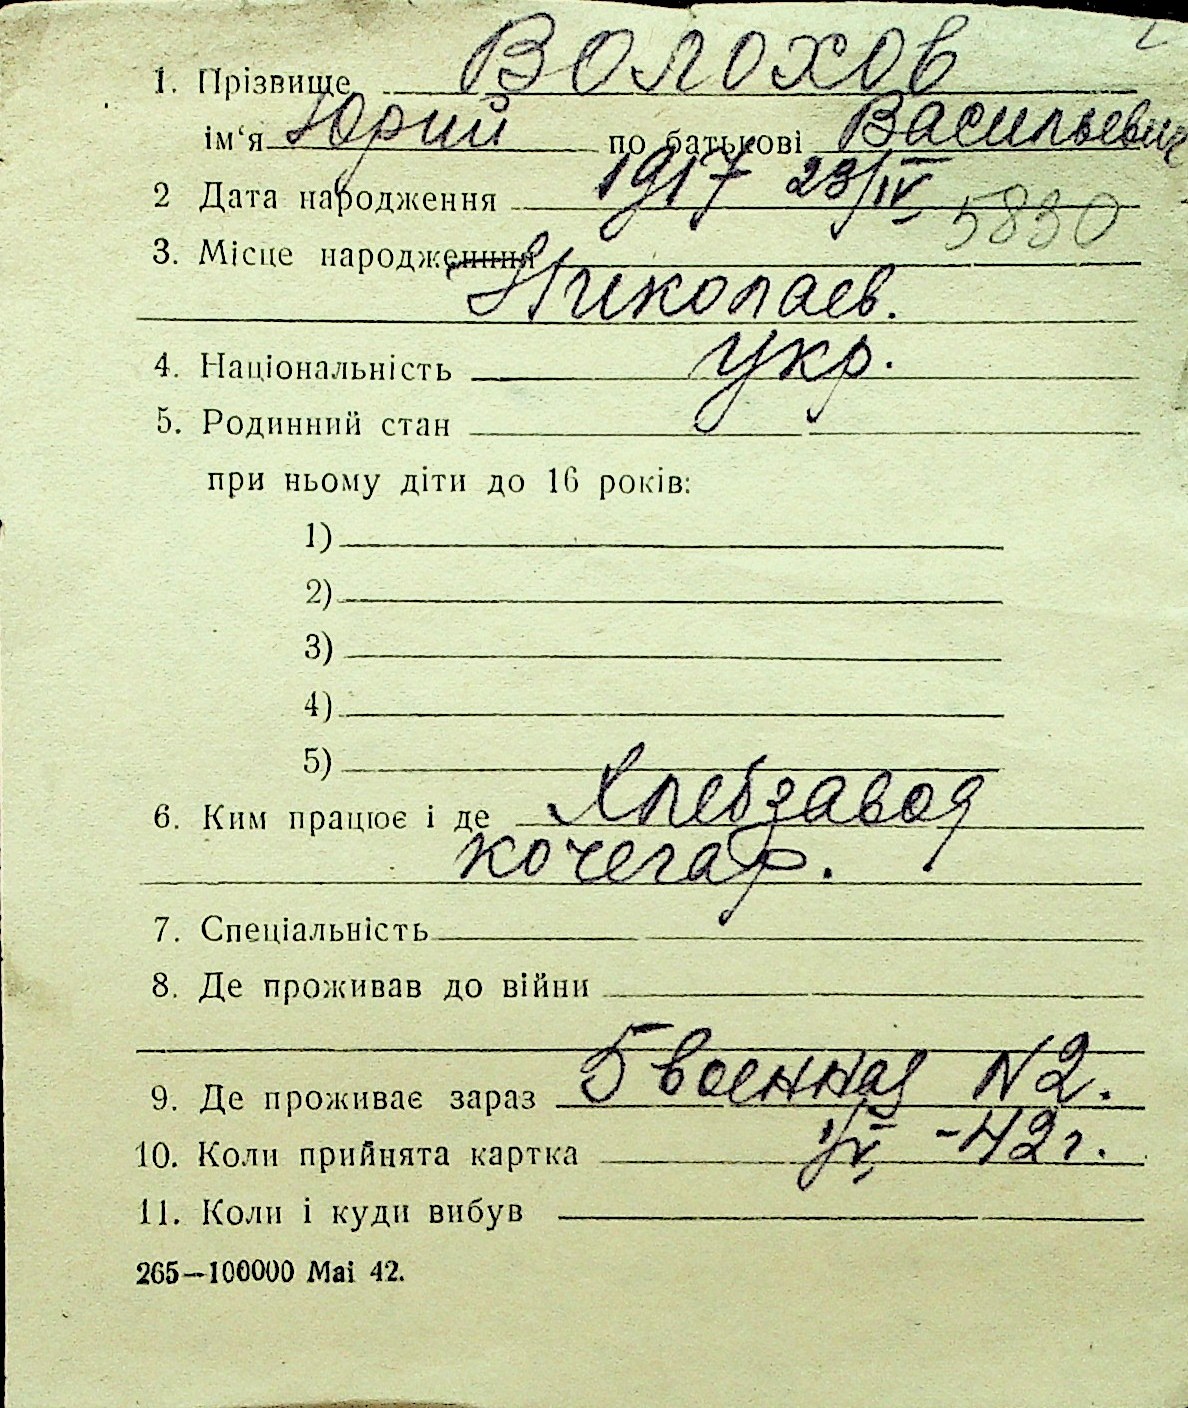 1. Прізвище Волохов
ім‘я Юрий по батькові Васильевич
2 Дата народження 1917 23/IV
5830
3. Місце народження
Николаев.
4. Національність укр.
5. Родинний стан
при ньому діти до 16 років:
1)
2)
3)
4)
5)
6. Ким працює і де Хлебзавод
кочегар.
7. Спеціальність
8. Де проживав до війни
9. Де проживає зараз 5 военная N 2.
10. Коли прийнята картка -42 г.
11. Коли і куди вибув
265—100000 Mai 42.